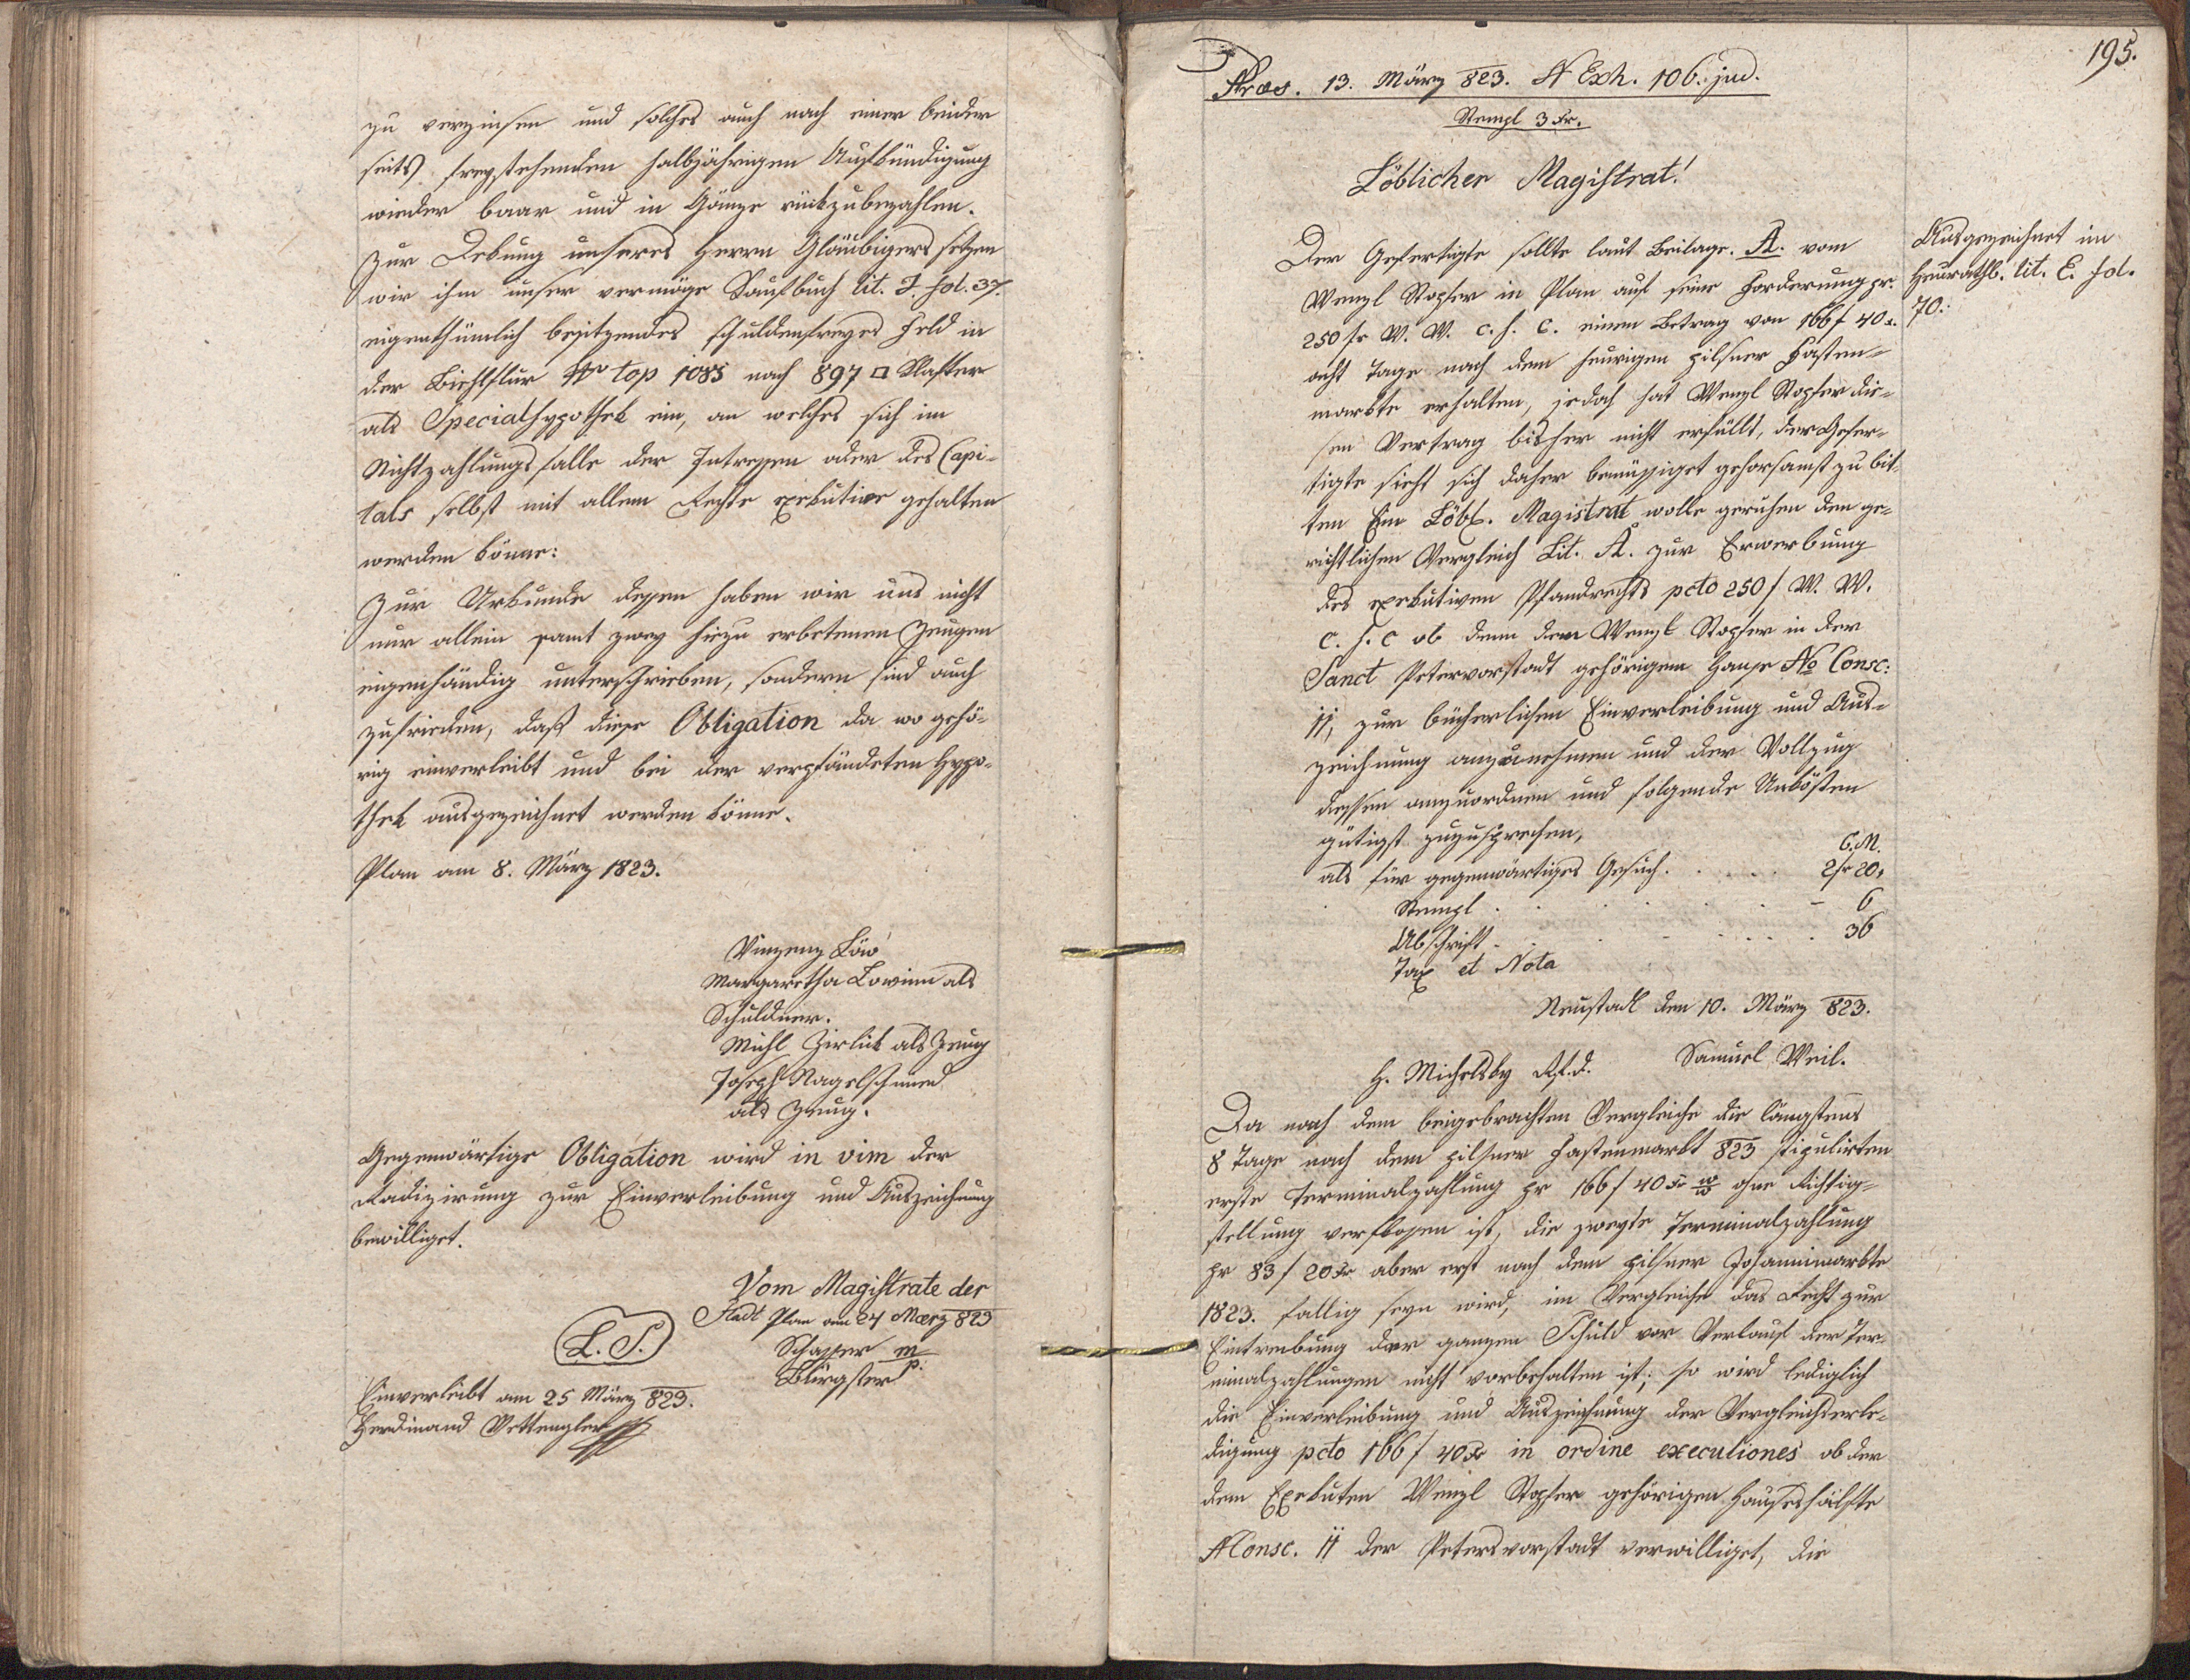 zu verzinsen und solches auch nach einer beider
seits freystehenden halbjährigen Aufkündigung
wieder baar und in Gänze rückzubezahlen.
Zur Dekung unseres Herrn Gläubigers setzen
wir ihm unser vermöge Kaufbuch lit. J. fol. 37.
eigenthümlich besitzendes schuldenfreyes Feld in
der Bichlflur Nro top 1085 nach 897 □ Klafter
als Specialhypothek ein, an welches sich im
Nichtzahlungsfalle der Intressen oder des Capi-
tals selbst mit allem Rechte exekutive gehalten
werden könne:
Zur Urkunde dessen haben wir uns nicht
nur allein samt zwey hiezu erbetenen Zeugen
eigenhändig unterschrieben, sondern sind auch
zufrieden, daß diese Obligation da wo gehö-
rig einverleibt und bei der verpfändeten Hypo-
thek ausgezeichnet werden könne.
Plan am 8. März 1823.
Vinzenz Löw
Margaretha Löwinn als
Schuldner.
Michl Zirlick als Zeug
Joseph Nagelschmied
als Zeug.
Gegenwärtige Obligation wird in vim der
Radizirung zur Einverleibung und Auszeichnung
bewilliget.
Vom Magistrate der
Stadt Plan am 24 Maerz 823
L. S.
Schaffer m
p.
Bürgster
Einverleibt am 25 März 823.
Ferdinand Vettengler
195.
Præs. 13. März 823. N Exh. 106. jud.
Stempl 3 xr.
Löblicher Magistrat!
Der Gefertigte sollte laut Beilage. A. vom
Wenzl Stopfer in Plan auf seine Forderung pr.
250 fr W. W. c. s. c. einen Betrag von 166 f 40 x.
acht Tage nach dem heurigen pilsner Fasten=
markte erhalten, jedoch hat Wenzl Stopfer die=
sen Vertrag bisher nicht erfüllt, der Gefer=
tigte sieht sich daher bemüssiget gehorsamst zu bit-
ten Ein Löbl. Magistrat wolle geruhen den ge=
richtlichen Vergleich Lit. A. zur Erwerbung
des exekutiven Pfandrechts pcto 250 f W. W.
c. s. c ob dem dem Wenzl Stopfer in der
Sanct Petervorstadt gehörigem Hause No Consc:
11, zur bücherlichen Einverleibung und Aus=
zeichnung anzunehmen und der Vollzug
dessen anzuordnen und folgende Unkösten
gütigst zuzusprechen,
C. M.
als für gegenwärtiges Gesuch. . . . . . 2 fr 20,
Stempl . . . . . . . – 6
Abschrift . . . . . . . 36
Tax et Nota
Neustadl den 10. März 823.
Samuel Weil.
Da nach dem beigebrachten Vergleiche die längstens
8 Tage nach dem pilsner Fastenmarkt 823 stipulirten
erste Terminalzahlung pr 166 f 40 xr W/W ohne Richtig=
stellung verflossen ist, die zweyte Terminalzahlung
pr 83 f 20 xr aber erst nach dem pilsner Johannimarkte
1823. fällig seyn wird, im Vergleiche das Recht zur
Eintreibung der ganzen Schuld vor Verlauf der Ter-
minalzahlungen nicht vorbehalten ist; so wird lediglich
die Einverleibung und Auszeichnung der Vergleichserle-
digung pcto 166 f 40 xr in ordine executiones ob der
dem Exekuten Wenzl Stopfer gehörigen Haushälfte
N Consc. 11 der Petersvorstadt verwilliget, die
Ausgezeichnet im
Heurathb. lit. E. fol.
70.